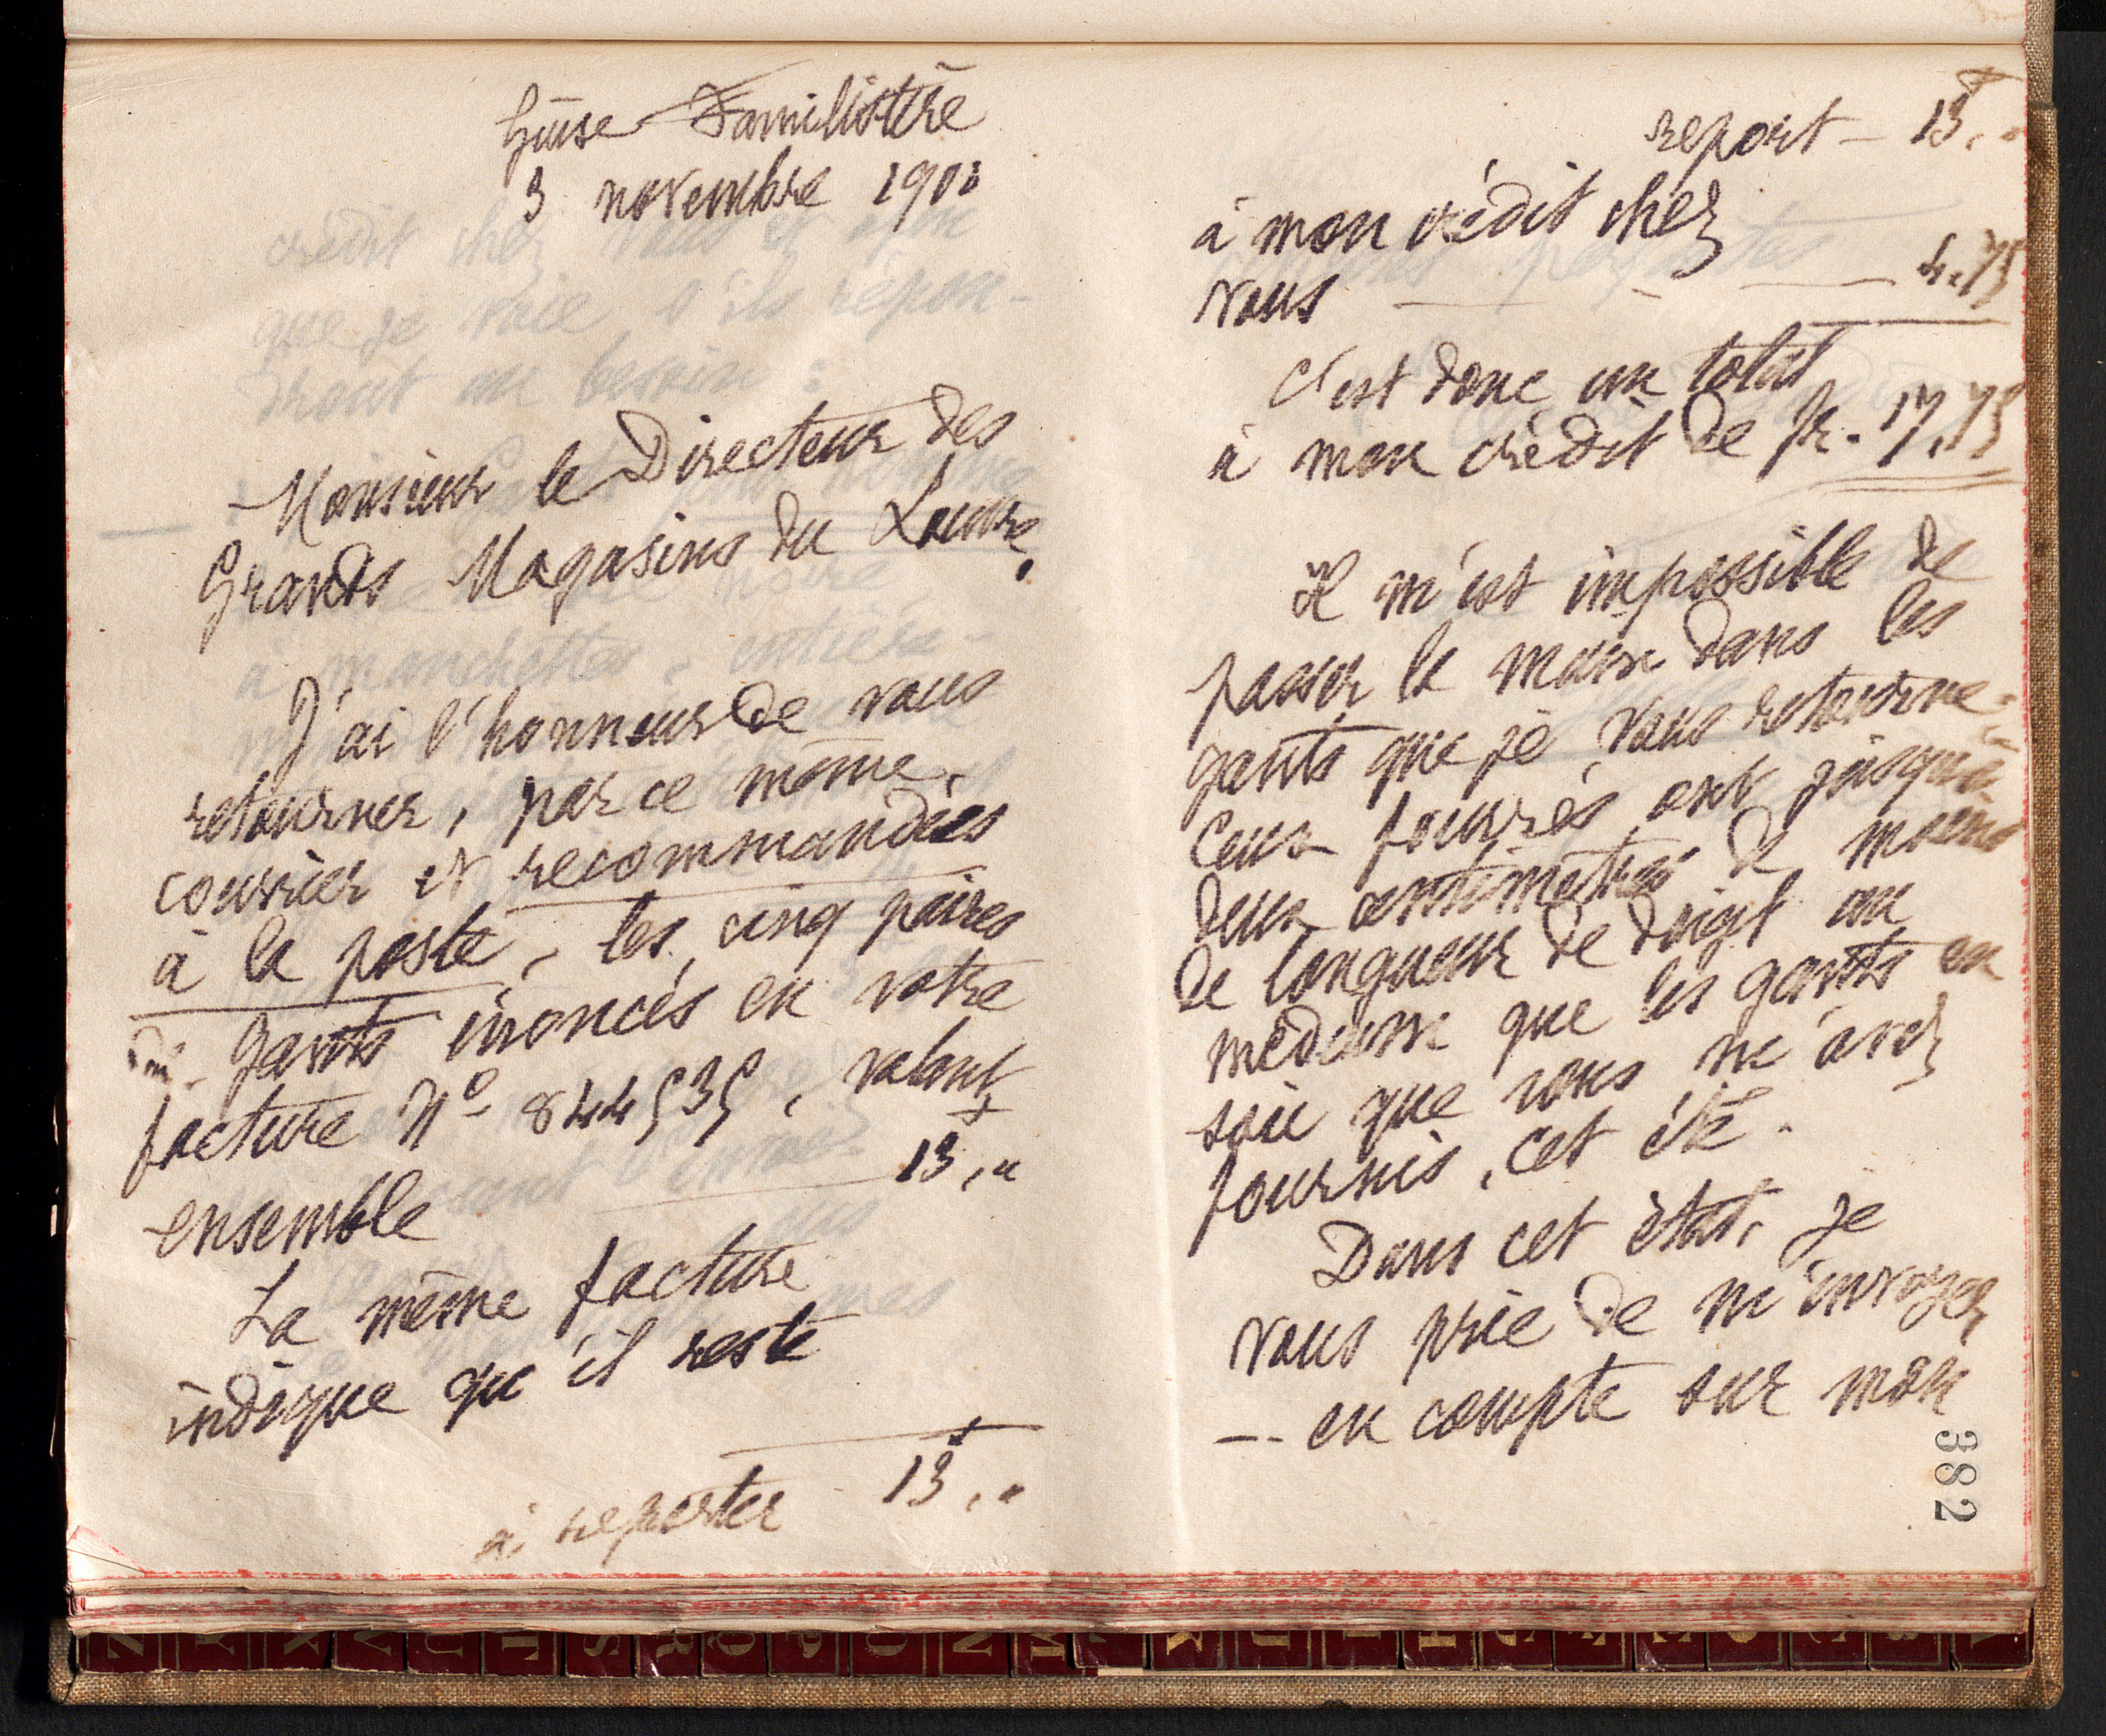 Guise-Familistère
3 novembre 1901
Monsieur le Directeur des
Grands Magasins du Louvre,
J'ai l'honneur de vous
retourner, par ce même
courrier et recommandées
à la poste, les cinq paires
de gants énoncés en votre
facture No 844535, valant
ensemble 13,"
La même facture
indique qu'il reste
à reporter 13,"
report - 13,"
à mon crédit chez
vous 4.75
C'est donc un total
à mon crédit de fr. 17,75
Il m'est impossible de
passer la main dans les
gants que je vous retourne.
Ceux fourrés ont jusqu'à
deux centimètres de moins
de longueur de doigt au
médium que les gants en
soie que vous m'avez
fournis, cet été.
Dans cet état, je
vous prie de m'envoyer
-- en compte sur mon
382
crédit chez vous et afin
que je voie s'ils répon-
dront au besoin :
à manchettes, entière-
Z Y X V U T S R Q P O N M L K J I H G F E D C B A